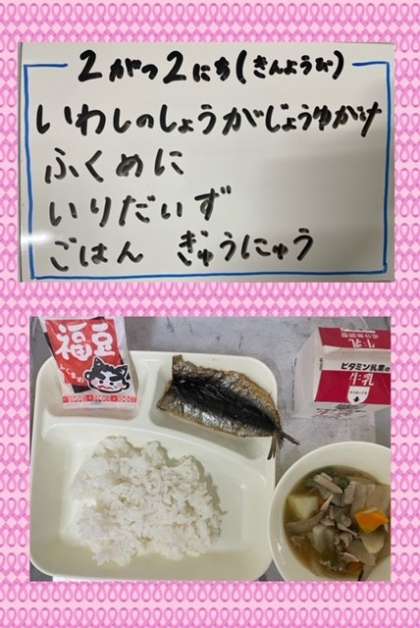 2がつ2にち(きんようび)
いわしのしょうがじょうゆかけ
ふくめに
いりだいず
ごはん ぎゅうにゅう
福豆
ビタミン乳業の
牛乳